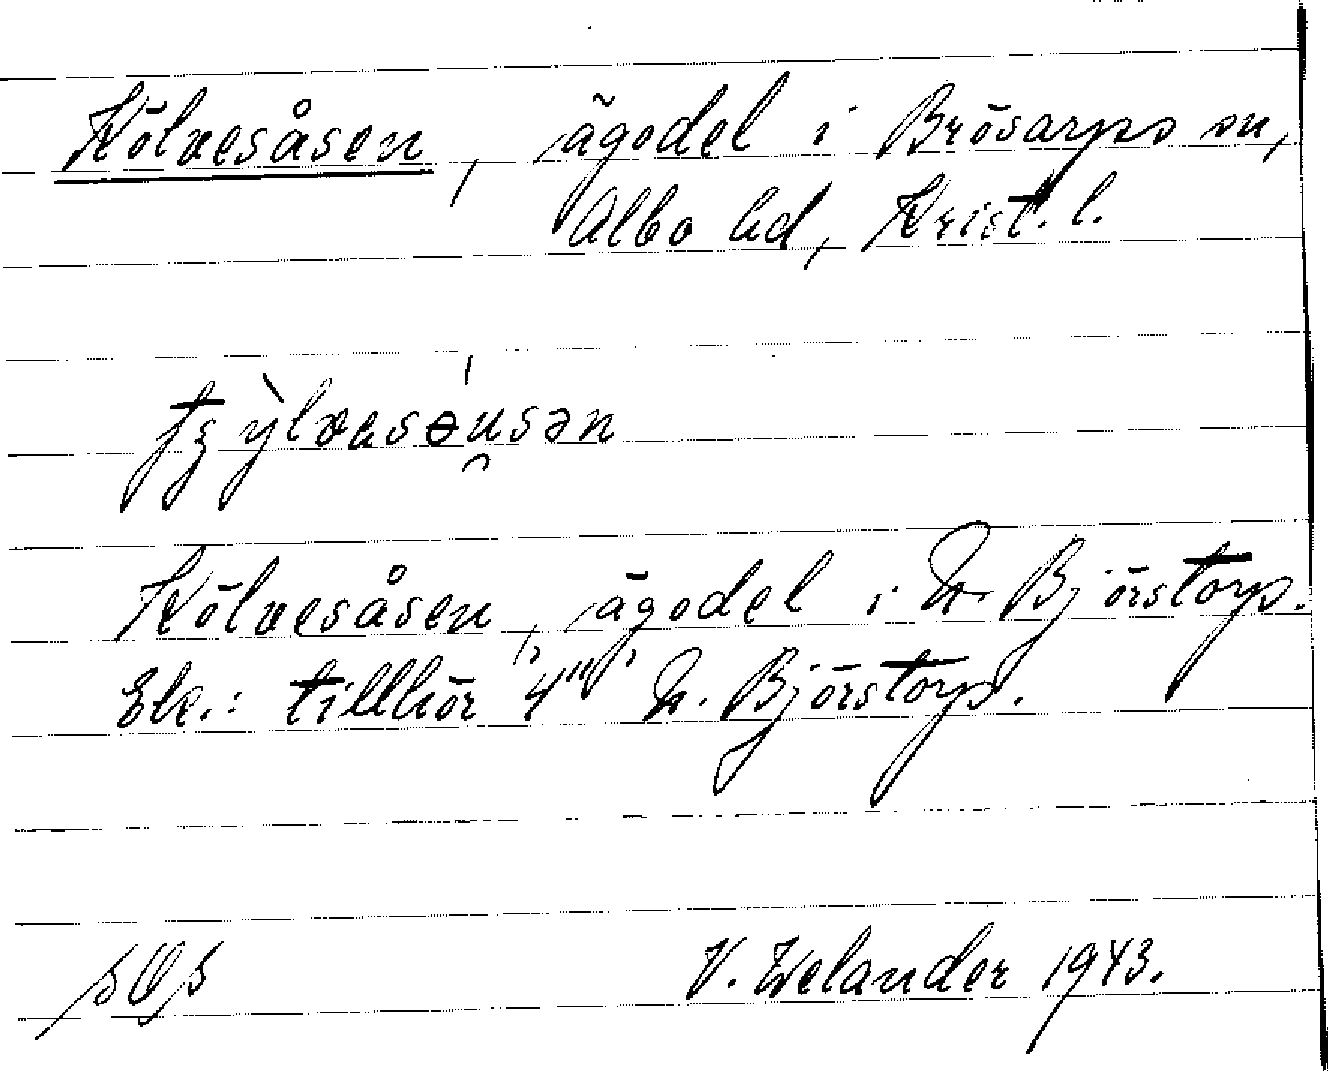 Kölvesåsen, ägodel i Brösarps sn,
Albo hd, Krist. l.
Kölvesåsen, ägodel i N. Björstorp.
Ek.: tillhör 4''' N. Björstorp.
V. Welander 1943.